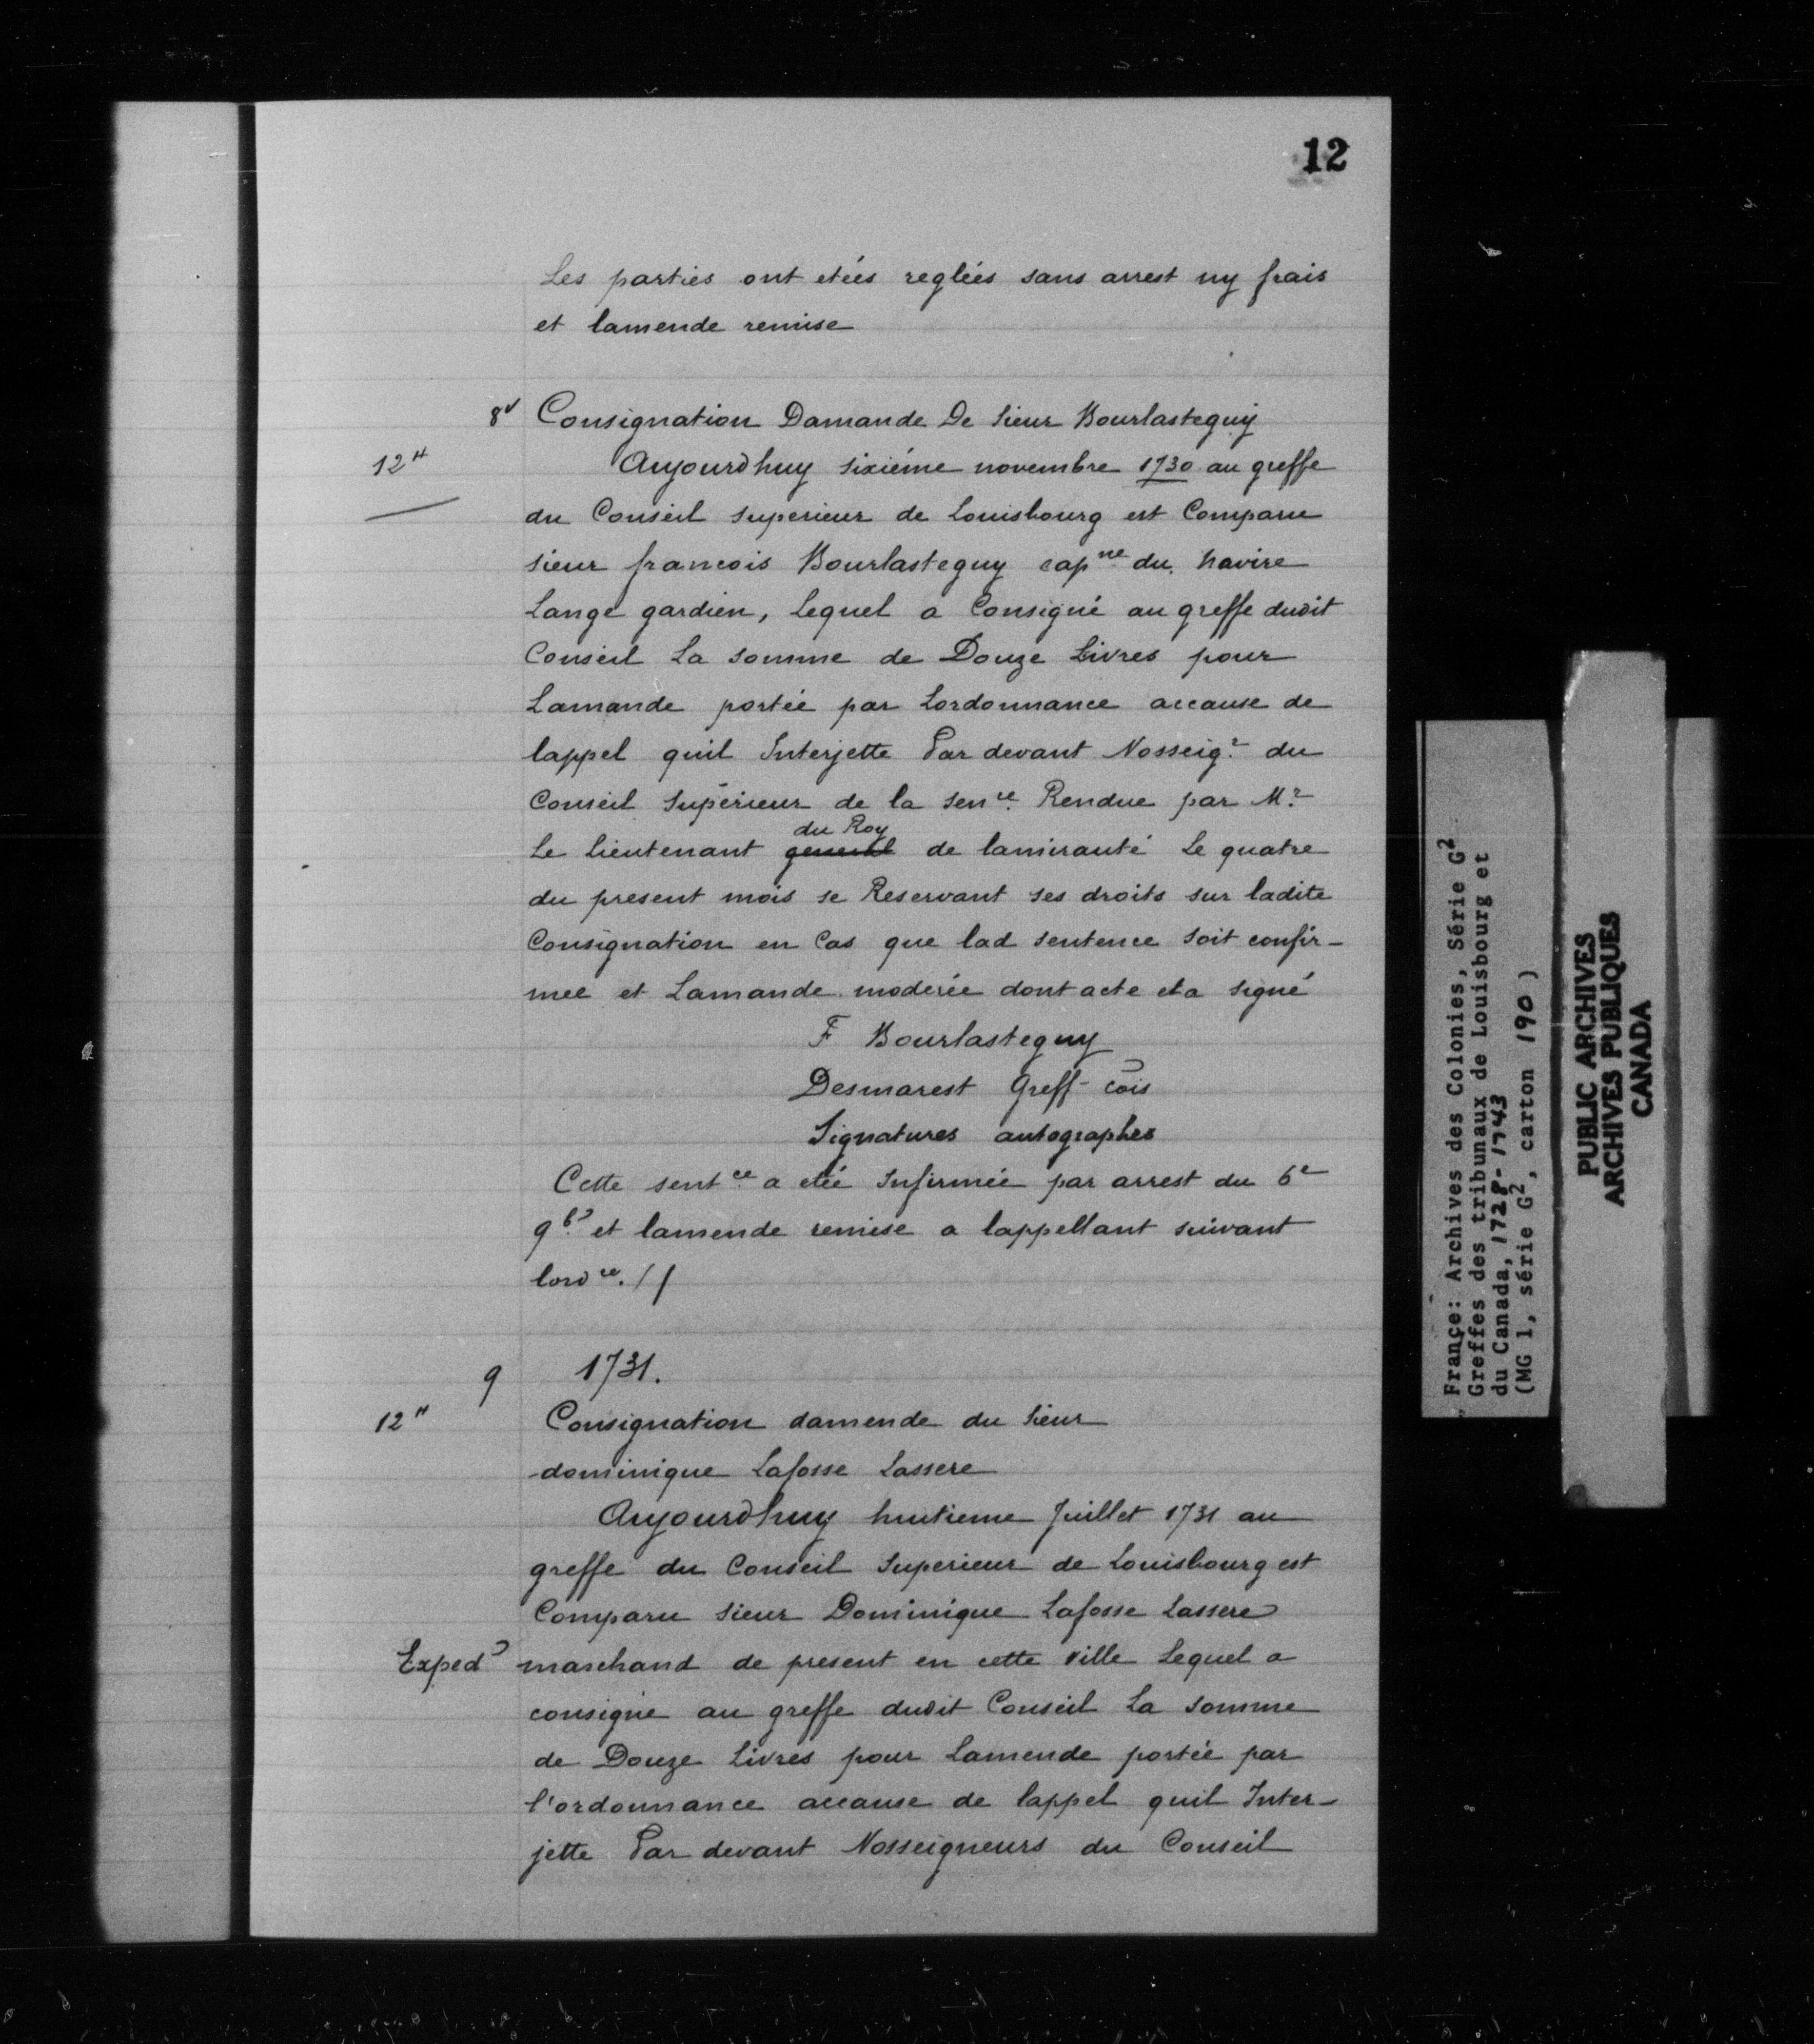 12
Les parties ont etées reglées sans arrest ny frais
et lamende remise
8v Consignation Damande De Sieur Bourlasteguy
12# Aujourdhuy sixiéme novembre 1730 au greffe
du Conseil superieur de Louisbourg est Comparu
sieur francois Bourlasteguy capne du navire
Lange gardien, Lequel a Consigné au greffe dudit
Conseil La somme de Douze Livres pour
Lamande portée par Lordonnance accause de
lappel quil Interjette Par devant Nosseigr du
Conseil Supérieur de la sence Rendue par Mr
du Roy
Le Lieutenant general de lamirauté Le quatre
du present mois se Reservant ses droits sur ladite
Consignation en Cas que lad sentence soit confir-
mee et Lamande moderée dont acte et a signé
F Bourlasteguy
Desmarest Greff cõis
Signatures autographes
Cette sentce a etée Infirmée par arrest du 6e
9b? et lamende remise a lappellant suivant
lordce. //
9 1731.
12# Consignation damende du Sieur
dominique Lafosse Lassere
Aujourdhuy huitieme Juillet 1731 au
greffe du Conseil Superieur de Louisbourg est
Comparu Sieur Dominique Lafosse Lassere
Exped? marchand de present en cette ville Lequel a
consigné au greffe dudit Conseil La somme
de Douze Livres pour Lamende portée par
l'ordonnance accause de lappel quil Inter-
jette Par devant Nosseigneurs du Conseil
France: Archives des Colonies, Série G2
Greffes des tribunaux de Louisbourg et
du Canada, 1728-1743
(MG 1, série G2, carton 190)
PUBLIC ARCHIVES
ARCHIVES PUBLIQUES
CANADA